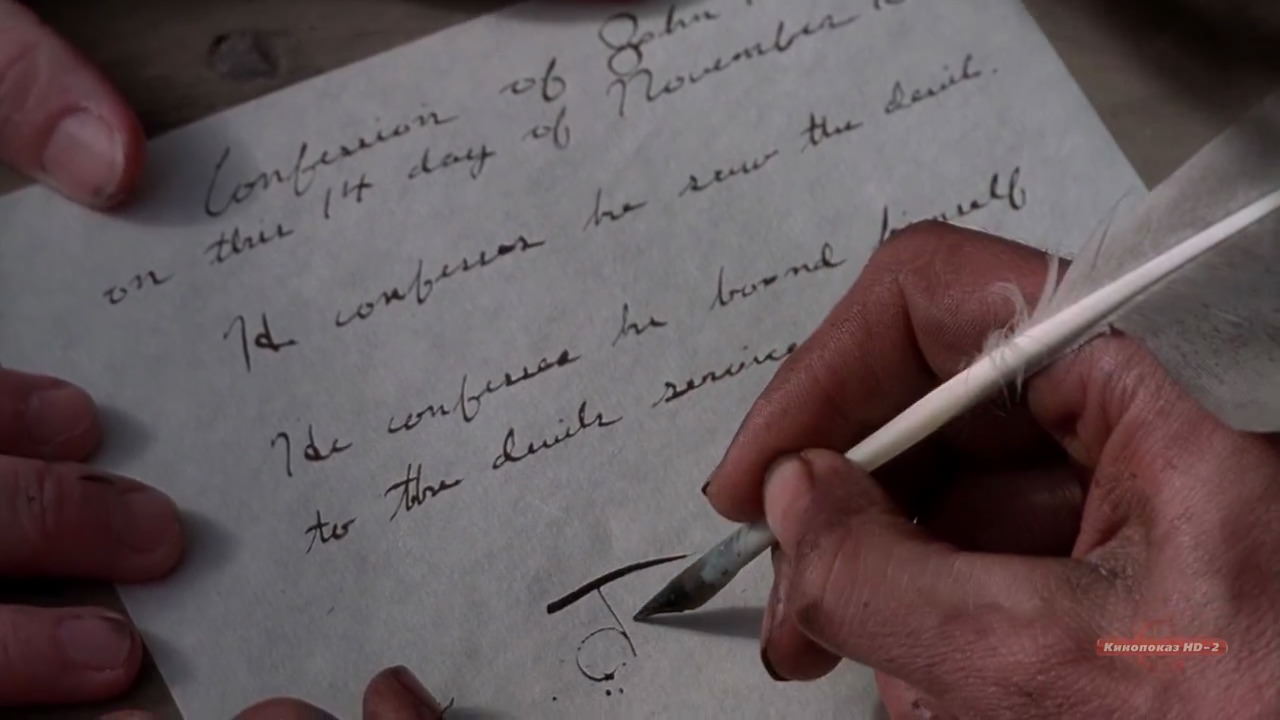 Confession of John
on this 14 day of November
He confesses he saw the devil.
He confesses he bound himself
to the devils service
J
Кинопоказ HD-2